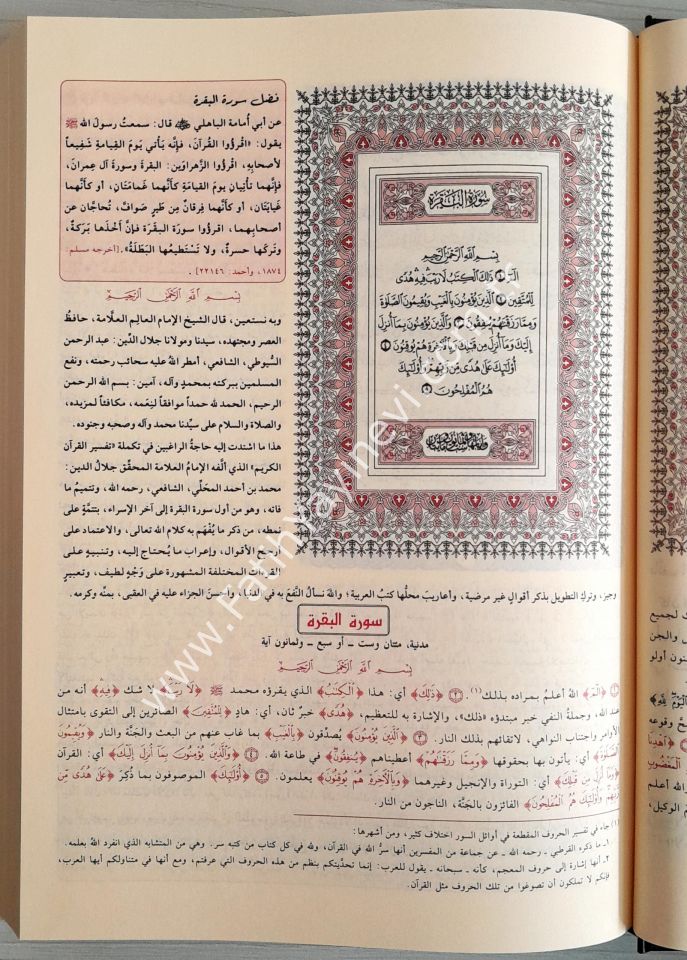 فضل سورة البقرة
عن أبي أمامة الباهلي رضي الله عنه قال: سمعتُ رسولَ الله ﷺ
يقول: «اقْرؤوا القُرآنَ، فإنَّه يأتي يَومَ القِيامةِ شَفيعاً
لأصحابِهِ، اقْرؤوا الزَّهراوَينِ: البقرةَ وسورةَ آلِ عِمرانَ،
فإنَّهما تأتيانِ يومَ القيامةِ كأنَّهما غَمامَتانِ، أو كأنَّهما
غَيايَتانِ، أو كأنَّهما فِرقانِ مِن طَيرٍ صَوافَّ، تُحاجَّانِ عن
أصحابِهما، اقرؤوا سورةَ البقَرةِ فإنَّ أخْذَها بَرَكةٌ،
وتَركَها حسرةٌ، ولا تَسْتطيعُها البَطَلَةُ». [أخرجه مسلم:
١٨٧٤، وأحمد: ٢٢١٤٦] .
بِسْمِ اللَّهِ الرَّحْمَٰنِ الرَّحِيمِ
وبه نستعين، قال الشيخ الإمام العالِم العلَّامة، حافظُ
العصر ومجتهده، سيدنا ومولانا جلال الدِّين: عبد الرحمن
السُّيوطي، الشافعي، أمطر اللهُ عليه سحائب رحمته، ونفع
المسلمين ببركته بمحمدٍ وآله، آمين: بسم الله الرحمن
الرحيم، الحمد لله حمداً موافقاً لنِعَمه، مكافئاً لمزيده،
والصلاة والسلام على سيِّدنا محمد وآله وصحبه وجنوده.
هذا ما اشتدت إليه حاجةُ الراغبين في تكملة «تفسير القرآن
الكريم» الذي ألَّفه الإمامُ العلامة المحقِّق جلالُ الدين:
محمد بن أحمد المحَلِّي، الشافعي، رحمه الله، وتتميمُ ما
فاته، وهو من أول سورة البقرة إلى آخر الإسراء، بتتمَّةٍ على
نمطه، من ذكر ما يُفْهَم به كلام الله تعالى، والاعتماد على
أرجح الأقوال، وإعراب ما يُحتاج إليه، وتنبيهٍ على
القراءات المختلفة المشهورة على وَجْهٍ لطيف، وتعبيرٍ
سُورَةُ البَقَرَةِ
بِسْمِ اللَّهِ الرَّحْمَٰنِ الرَّحِيمِ
الٓمٓ ١ ذَٰلِكَ الْكِتَابُ لَا رَيْبَ فِيهِ هُدًى
لِّلْمُتَّقِينَ ٢ الَّذِينَ يُؤْمِنُونَ بِالْغَيْبِ وَيُقِيمُونَ الصَّلَاةَ
وَمِمَّا رَزَقْنَاهُمْ يُنفِقُونَ ٣ وَالَّذِينَ يُؤْمِنُونَ بِمَا أُنزِلَ
إِلَيْكَ وَمَا أُنزِلَ مِن قَبْلِكَ وَبِالْآخِرَةِ هُمْ يُوقِنُونَ ٤
أُولَٰئِكَ عَلَىٰ هُدًى مِّن رَّبِّهِمْ وَأُولَٰئِكَ
هُمُ الْمُفْلِحُونَ ٥
وجيز، وتركِ التطويل بذكر أقوالٍ غير مرضية، وأعاريبَ محلُّها كتبُ العربية؛ واللهَ نسألُ النَّفعَ به في الدنيا، وأحسنَ الجزاء عليه في العقبى، بمنِّه وكرمه.
سورة البقرة
مدنية، مئتان وست ـ أو سبع ـ وثمانون آية
بِسْمِ اللَّهِ الرَّحْمَٰنِ الرَّحِيمِ
١ ﴿الٓمٓ﴾ اللهُ أعلمُ بمراده بذلك(١). ٢ ﴿ذَٰلِكَ﴾ أي: هذا ﴿الْكِتَابُ﴾ الذي يقرؤه محمد ﷺ ﴿لَا رَيْبَ﴾ لا شك ﴿فِيهِ﴾ أنه من
عند الله، وجملةُ النفي خبر مبتدؤه «ذلك»، والإشارة به للتعظيم، ﴿هُدًى﴾ خبرٌ ثان، أي: هادٍ ﴿لِّلْمُتَّقِينَ﴾ الصائرين إلى التقوى بامتثال
الأوامر واجتناب النواهي، لاتقائهم بذلك النار. ٣ ﴿الَّذِينَ يُؤْمِنُونَ﴾ يُصدِّقون ﴿بِالْغَيْبِ﴾ بما غاب عنهم من البعث والجنَّة والنار ﴿وَيُقِيمُونَ
الصَّلَاةَ﴾ أي: يأتون بها بحقوقها ﴿وَمِمَّا رَزَقْنَاهُمْ﴾ أعطيناهم ﴿يُنفِقُونَ﴾ في طاعة الله. ٤ ﴿وَالَّذِينَ يُؤْمِنُونَ بِمَا أُنزِلَ إِلَيْكَ﴾ أي: القرآن
﴿وَمَا أُنزِلَ مِن قَبْلِكَ﴾ أي: التوراة والإنجيل وغيرهما ﴿وَبِالْآخِرَةِ هُمْ يُوقِنُونَ﴾ يعلمون. ٥ ﴿أُولَٰئِكَ﴾ الموصوفون بما ذُكِرَ ﴿عَلَىٰ هُدًى مِّن
رَّبِّهِمْ وَأُولَٰئِكَ هُمُ الْمُفْلِحُونَ﴾ الفائزون بالجَنَّة، الناجون من النار.
(١) جاء في تفسير الحروف المقطعة في أوائل السور اختلاف كثير، ومن أشهرها:
١ـ ما ذكره القرطبي ـ رحمه الله ـ عن جماعة من المفسرين أنها سرُّ الله في القرآن، ولله في كل كتاب من كتبه سر. وهي من المتشابه الذي انفرد اللهُ بعلمه.
٢ـ أنها إشارة إلى حروف المعجم، كأنه ـ سبحانه ـ يقول للعرب: إنما تحدَّيتكم بنظم من هذه الحروف التي عرفتم، ومع أنها في متناولكم أيها العرب،
فإنكم لا تملكون أن تصوغوا من تلك الحروف مثل القرآن.
www.Fatihyayinevi.com.tr